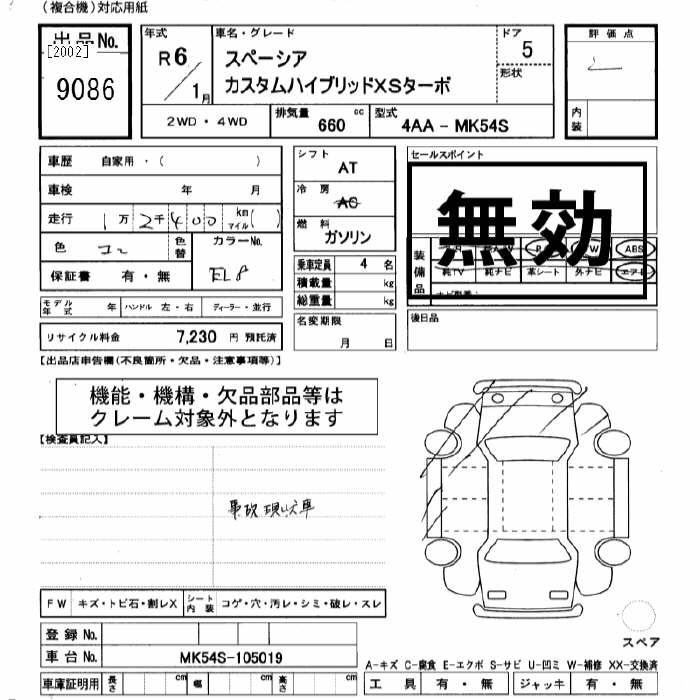 (複合機)対応用紙
出品No.
[2002]
9086
年式
R6/1月
車名・グレード
スペーシア
カスタムハイブリッドXSターボ
ドア
5
形状
評価点
内装
2WD・4WD
排気量
660 cc
型式
4AA - MK54S
車歴 自家用・( )
車検 年 月
走行 1万2千400 km マイル( )
色
色替
カラーNo.
保証書 有・無
モデル年式 年 ハンドル 左・右 ディーラー・並行
リサイクル料金 7,230 円 預託済
シフト
AT
冷房
AC
燃料
ガソリン
乗車定員 4 名
積載量 kg
総重量 kg
名変期限
月 日
セールスポイント
無効
装備品
ABS
純TV 純ナビ 革シート 外ナビ エアB
後日品
【出品店申告欄(不良箇所・欠品・注意事項等)】
機能・機構・欠品部品等は
クレーム対象外となります
【検査員記入】
事故現状車
FW キズ・トビ石・割レX シート内装 コゲ・穴・汚レ・シミ・破レ・スレ
登録No.
車台No. MK54S-105019
車庫証明用 長さ cm 幅 cm 高さ cm
スペア
A-キズ C-腐食 E-エクボ S-サビ U-凹ミ W-補修 XX-交換済
工具 有・無 ジャッキ 有・無